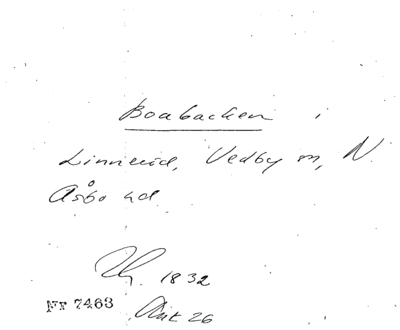 Boabacken i
Linneröd, Vedby sn, N.
Åsbo hd.
1832
NF 7463 Akt 26